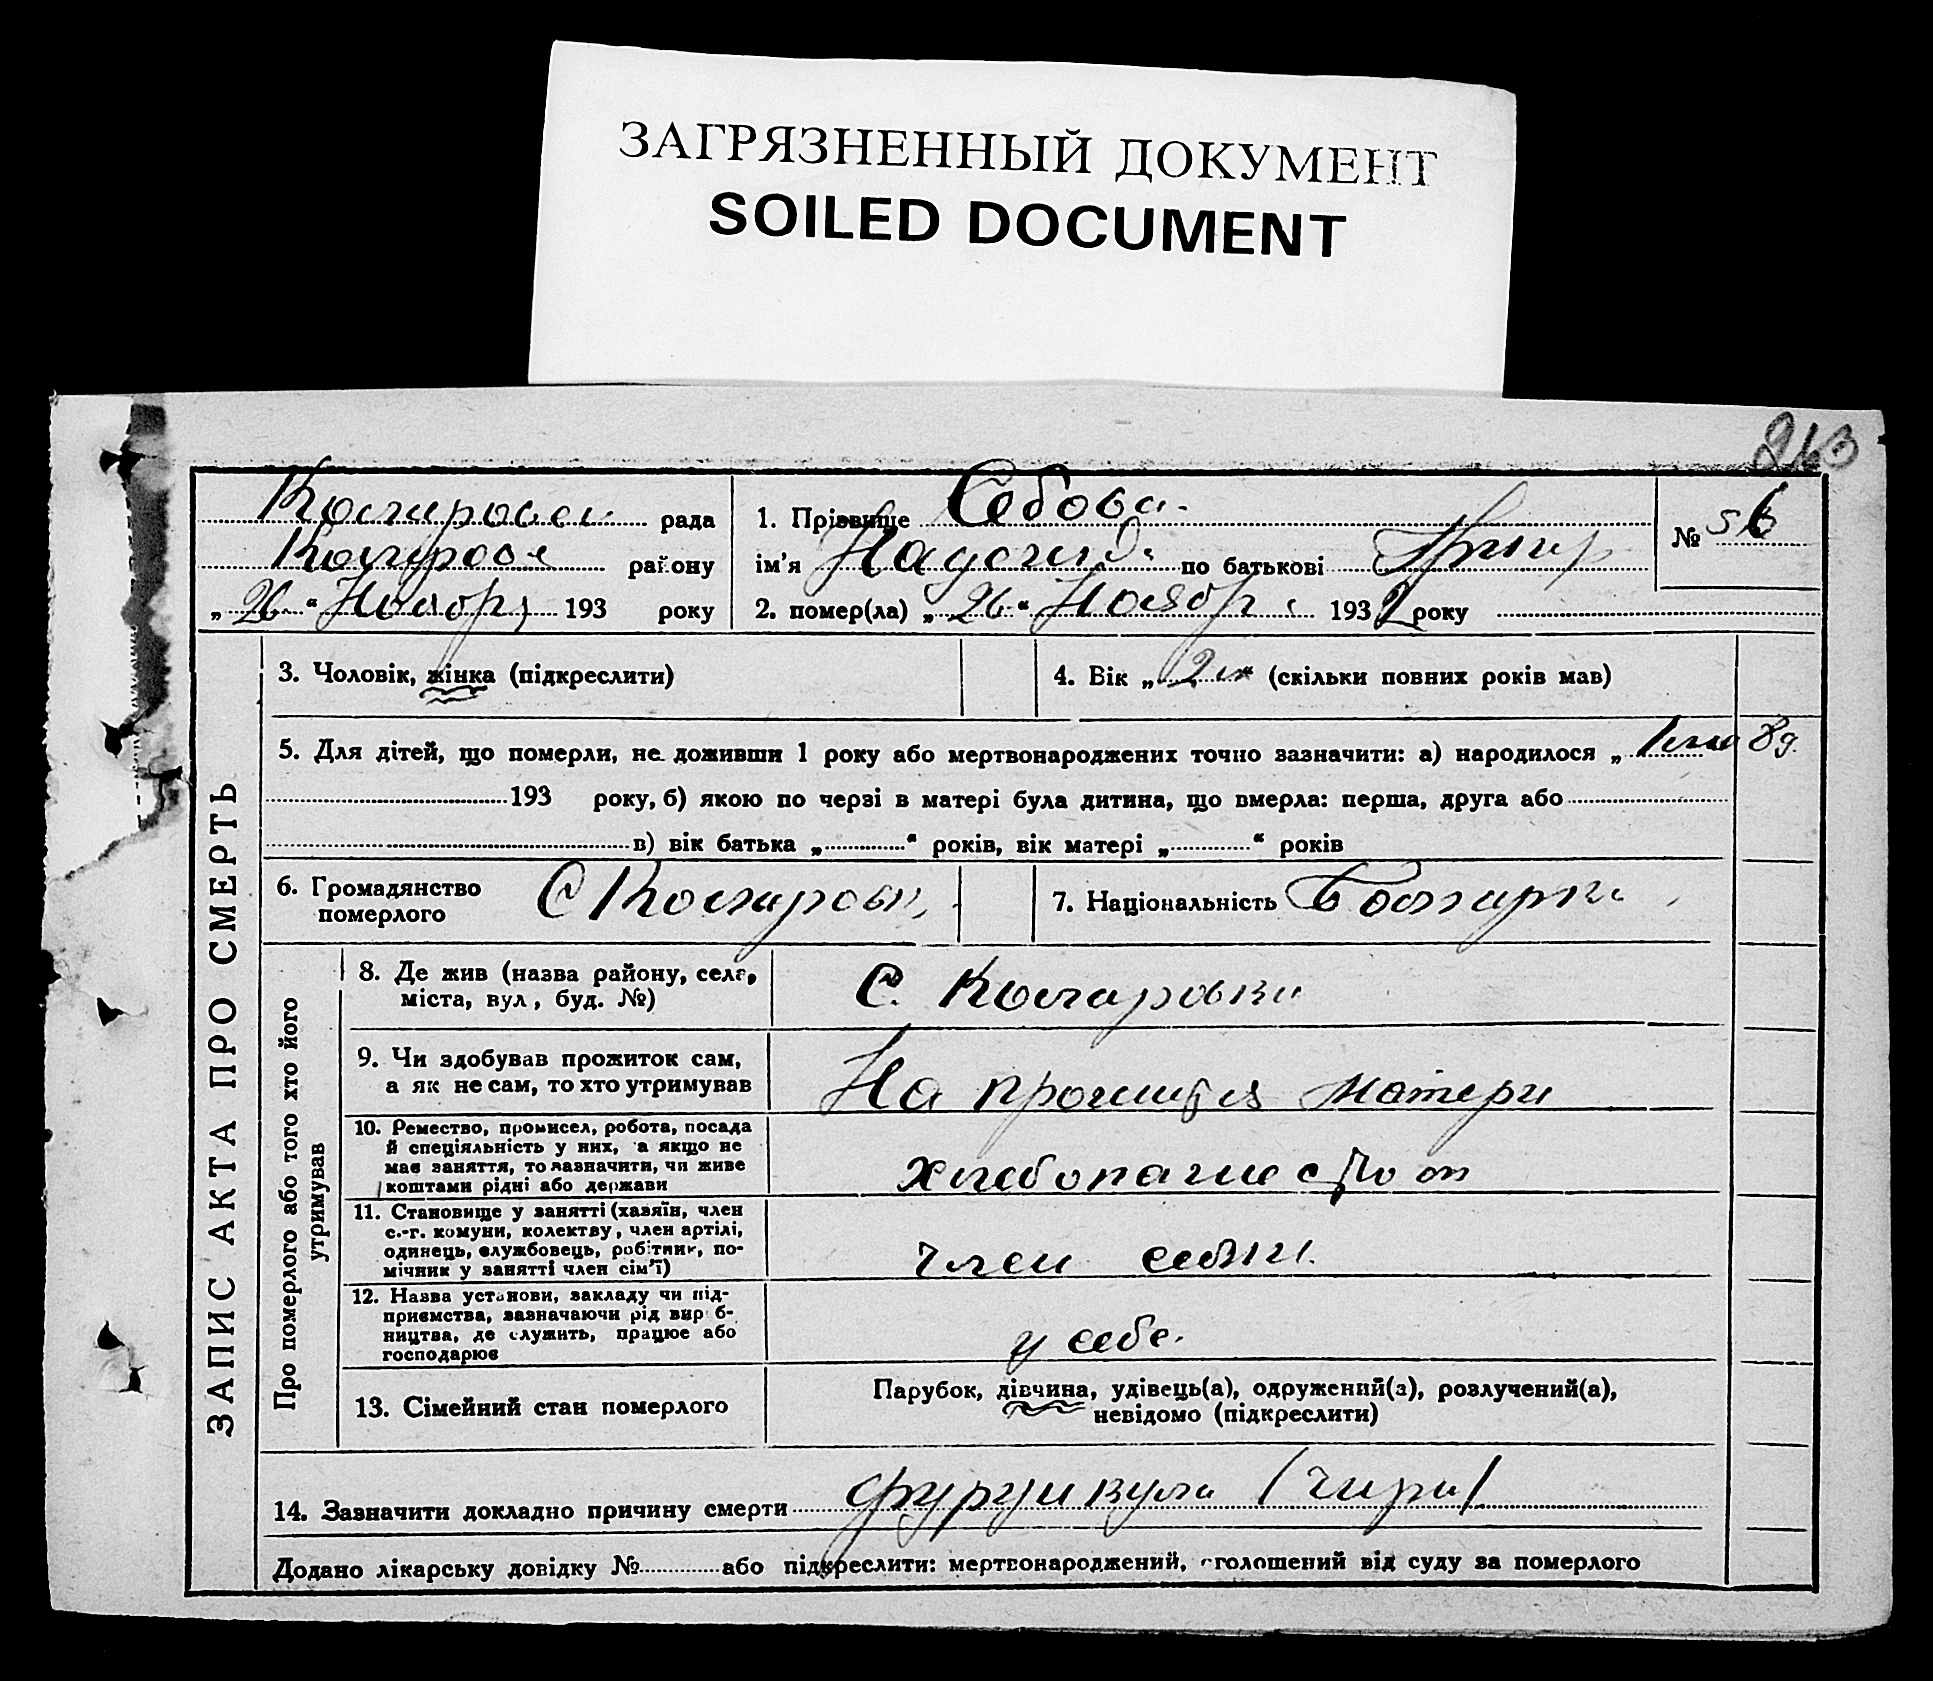 ЗАГРЯЗНЕННЫЙ ДОКУМЕНТ
SOILED DOCUMENT
ЗАПИС АКТА ПРО СМЕРТЬ
рада
району
„ 26 “ Ноября 193 року
1. Прізвище Себова
ім'я по батькові
2. помер(ла) „ 26 “ Ноября 1932 року
№ 56
3. Чоловік, жінка (підкреслити)
4. Вік „ 2 “ (скільки повних років мав)
5. Для дітей, що померли, не доживши 1 року або мертвонароджених точно зазначити: а) народилося „
193 року, б) якою по черзі в матері була дитина, що вмерла: перша, друга або
в) вік батька „ “ років, вік матері „ “ років
6. Громадянство
померлого
7. Національність Болгарка
Про померлого або того хто його
утримував
8. Де жив (назва району, села,
міста, вул, буд. №)
С.
9. Чи здобував прожиток сам,
а як не сам, то хто утримував
На матери
10. Ремество, промисел, робота, посада
й спеціяльність у них, а якщо не
має заняття, то зазначити, чи живе
коштами рідні або держави
11. Становище у занятті (хазяїн, член
с.-г. комуни, колектву, член артілі,
одинець, службовець, робітник, по-
мічник у занятті член сім'ї)
член семьи.
12. Назва установи, закладу чи під-
приємства, зазначаючи рід вироб-
ництва, де служить, працює або
господарює
у себе.
13. Сімейний стан померлого
Парубок, дівчина, удівець(а), одружений(а), розлучений(а),
невідомо (підкреслити)
14. Зазначити докладно причину смерти
Додано лікарську довідку № або підкреслити: мертвонароджений, оголошений від суду за померлого